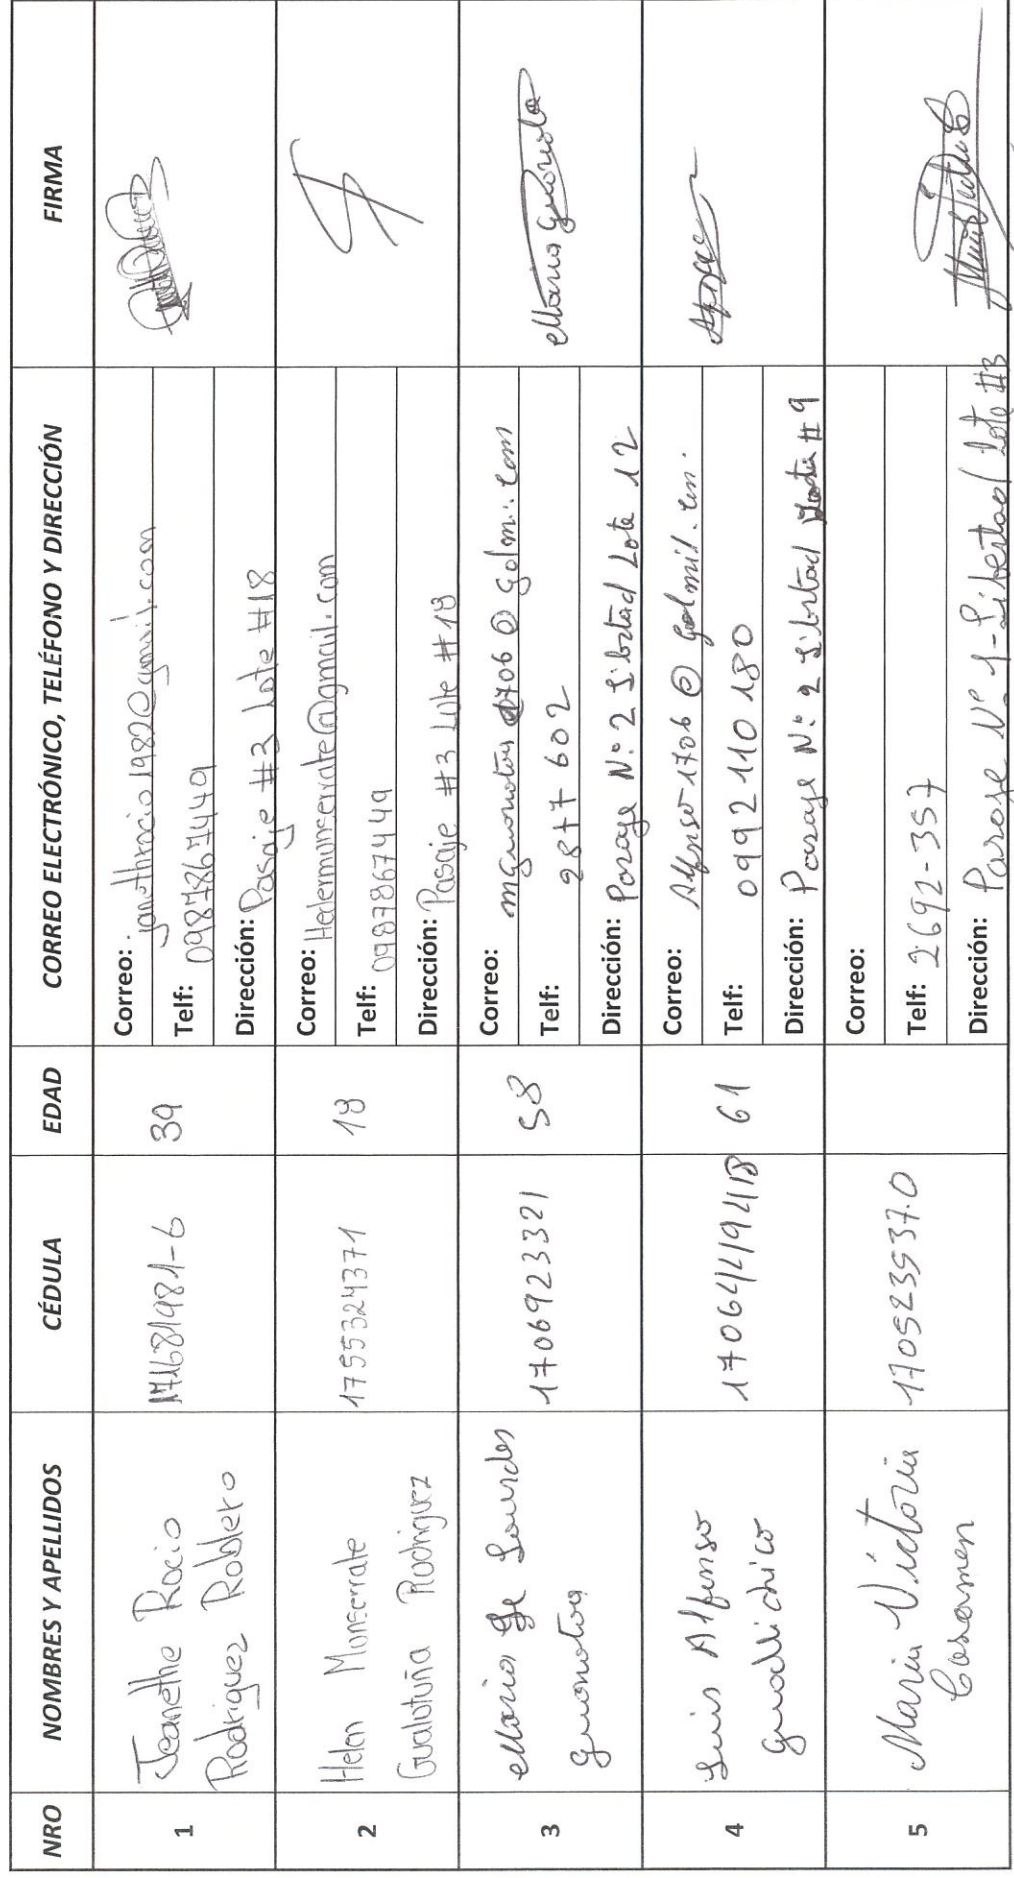 NRO NOMBRES Y APELLIDOS CÉDULA EDAD CORREO ELECTRÓNICO, TELÉFONO Y DIRECCIÓN FIRMA
1
Jeanethe Rocio
Rodriguez Roblero
171681981-6
39
Correo: janethrocio1982@gmail.com
Telf: 0987867449
Dirección: Pasaje #3 Lote #18
2
Helen Monserrate
Gualotuña Rodriguez
1755324371
18
Correo: Helenmonserrate@gmail.com
Telf: 0987867449
Dirección: Pasaje #3 Lote #18
3
Maria De Lourdes
Guanotoa
1706923321
58
Correo: mguanotoa1706@golmi.com
Telf: 2877602
Dirección: Pasaje N° 2 Libertad Lote 12
Maria Guanotoa
4
Luis Alfonso
Guallichico
1706449418
61
Correo: Alfonso1706@golmil.com
Telf: 0992110180
Dirección: Pasaje N° 2 Libertad #9
5
Maria Victoria
Casamen
170523537.0
Correo:
Telf: 2692-357
Dirección: Pasaje N° 1-Libertad Lote #3